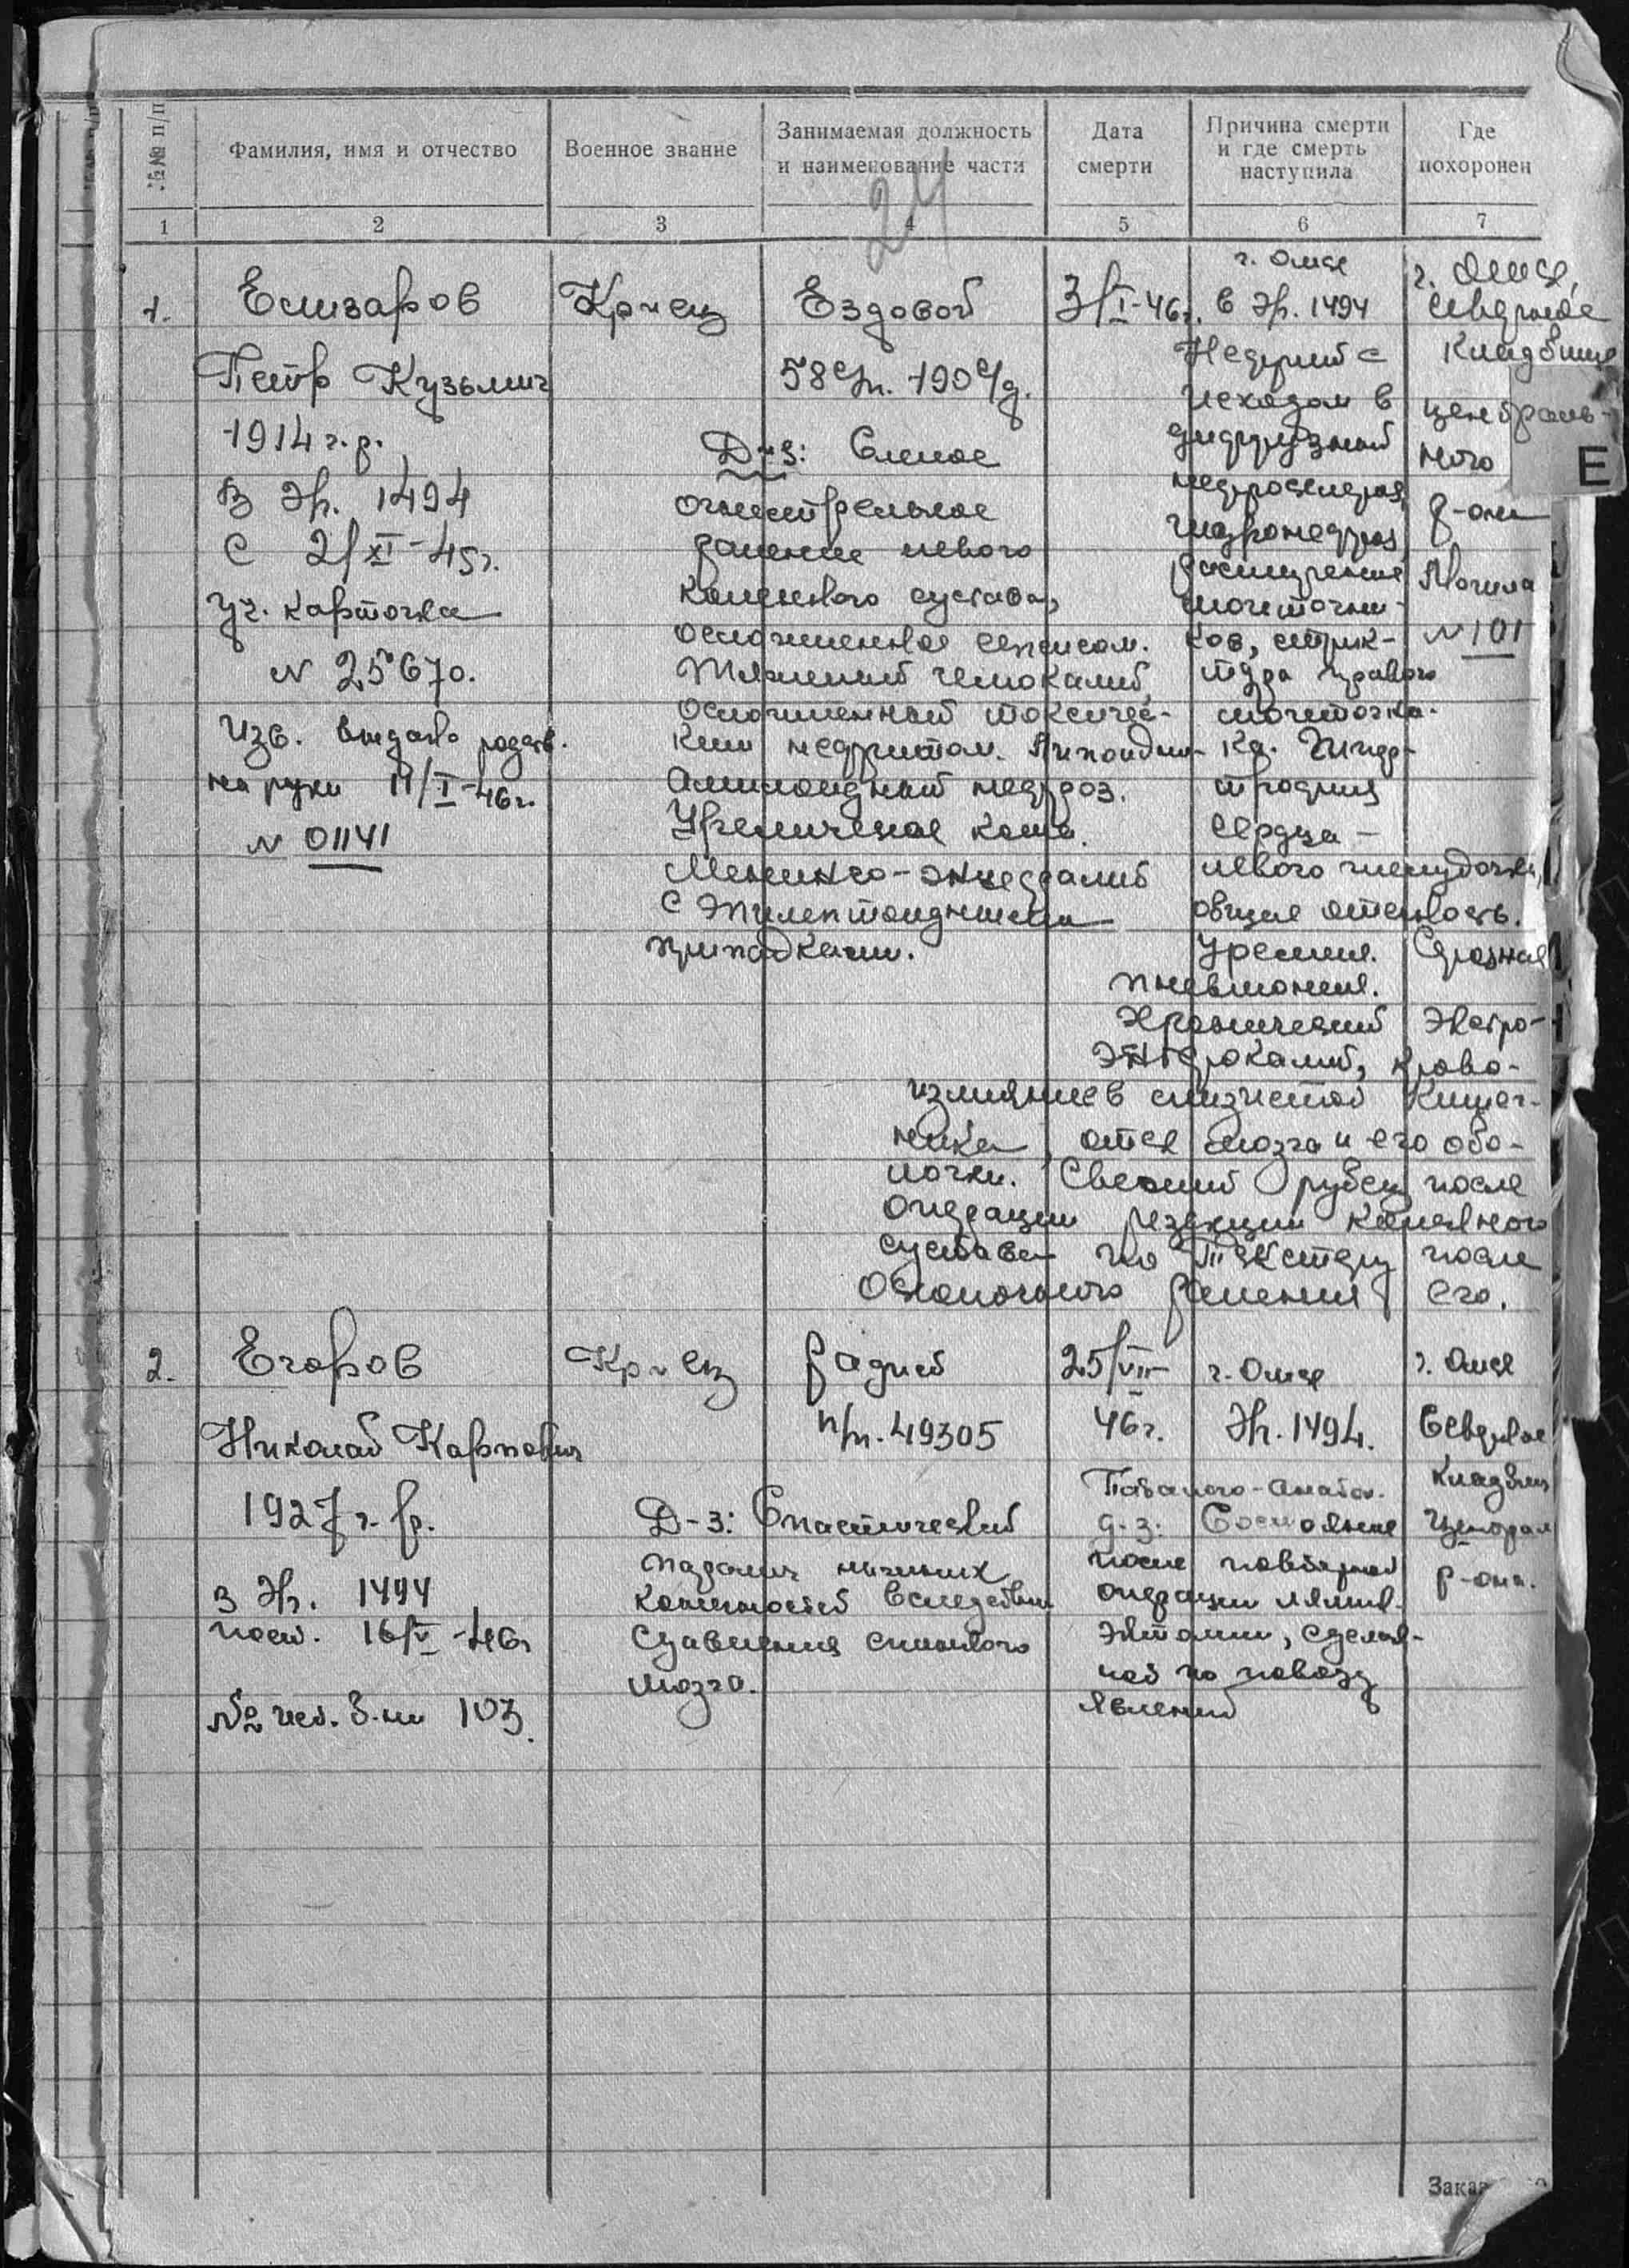 №№ п/п
Фамилия, имя и отчество
Военное звание
Занимаемая должность
и наименование части
Дата
смерти
Причина смерти
и где смерть
наступила
Где
похоронен
24
1 2 3 4 5 6 7
1.
Елизаров
Петр Кузьмич
1914 г.р.
В Эг. 1494
с 2/XI-45г.
Уч. карточка
№ 25670.
Изв. выдано родств.
на руки 11/I-46г.
№ 01141
Кр-ец
Ездовой
58 с/п. 190 с/д.
Д-з: Слепое
огнестрельное
ранение левого
коленного сустава,
осложненное сепсисом.
Тяжелый гемоколит,
осложненный токсичес-
ким нефритом. Липоидно-
амилоидный нефроз.
Уремическая кома.
Менинго-энцефалит
с эпилептоидными
припадками.
3/I-46г.
г. Омск
в Эг. 1494
Нефрит с
исходом в
диффузный
нефросклероз,
гидронефроз,
расширение
мочеточни-
ков, стрик-
тура правого
мочеточни-
ка. Гипер-
трофия
сердца -
левого желудочка,
общая отечность.
Уремия. Серозная
пневмония.
Хронический гастро-
энтероколит, крово-
излияние в слизистой кишеч-
ника, отек мозга и его обо-
лочки. Свежий рубец после
операции резекции коленного
сустава по Текстеру после
осколочного ранения его.
г. Омск,
Северное
Кладбище
централь-
ного
р-она
Могила
№ 101
Е
2.
Егоров
Николай Карпович
1927 г.р.
в Эг. 1494
пост. 16/V-46г
№ ист. б-ни 103.
Кр-ец
рядной
п/п. 49305
Д-з: Спастический
паралич нижних
конечностей вследствии
сдавления спинного
мозга.
25/VII
46г.
г. Омск
Эг. 1494.
Патолого-анатом.
д-з: Состояние
после повторной
операции лямин-
эктомии, сделан-
ной по поводу
явлений
г. Омск
Северное
Кладбищ
Централ
р-она.
Заказ